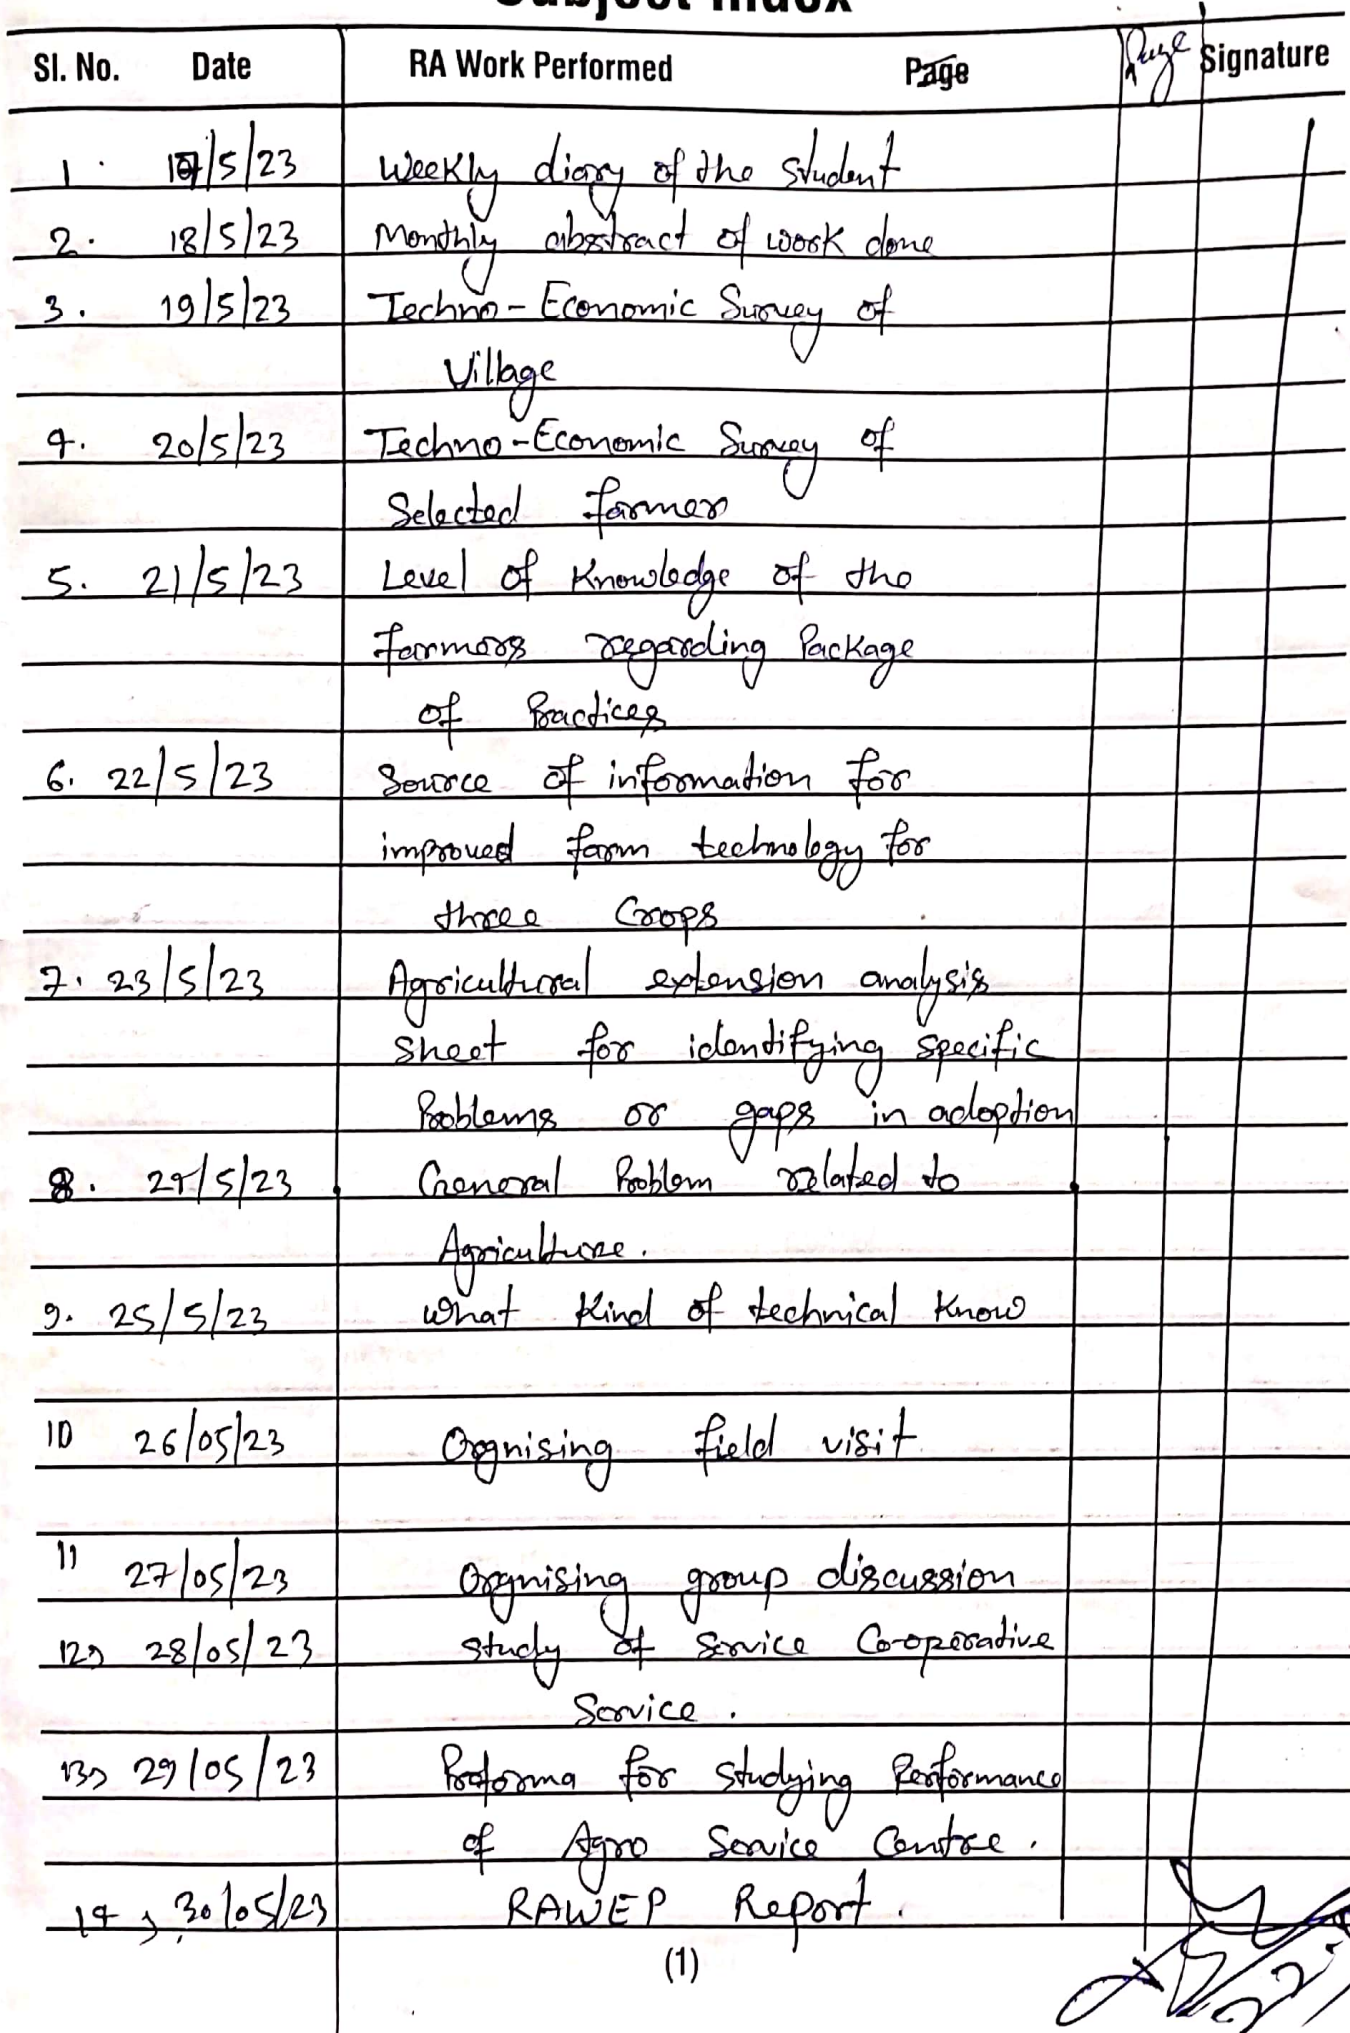 Subject Index
Sl. No. Date RA Work Performed Page Page Signature
1. 17/5/23 Weekly diary of the student
2. 18/5/23 Monthly abstract of work done
3. 19/5/23 Techno-Economic Survey of
Village
4. 20/5/23 Techno-Economic Survey of
Selected farmer
5. 21/5/23 Level of Knowledge of the
farmers regarding Package
of Practices
6. 22/5/23 Source of information for
improved farm technology for
three Crops
7. 23/5/23 Agricultural extension analysis
Sheet for identifying specific
Problems or gaps in adoption
8. 24/5/23 General Problem related to
Agriculture.
9. 25/5/23 what Kind of technical Know
10 26/05/23 Orgnising field visit
11 27/05/23 Orgnising group discussion
12) 28/05/23 study of Service Co-operative
Service.
13) 29/05/23 Proforma for studying Performance
of Agro Service Centre.
14) 30/05/23 RAWEP Report.
(1)